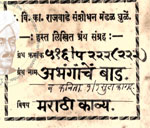 वि. का. राजवाडे संशोधन मंडळ धुळे.
हस्त लिखित ग्रंथ संग्रह
ग्रंथ क्रमांक ५१६/प २२२(२२५)
ग्रंथ नाम अभंगांचें बाड.
व कविता
विषय मराठी काव्य.